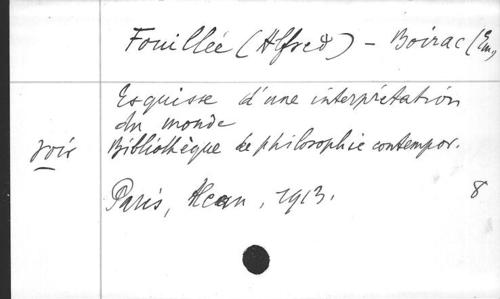 Fouillée (Alfred) - Boirac (Em)
Esquisse d'une interprétation
du monde
voir Bibliothèque de philosophie contempor.
Paris, Alcan, 1913. 8